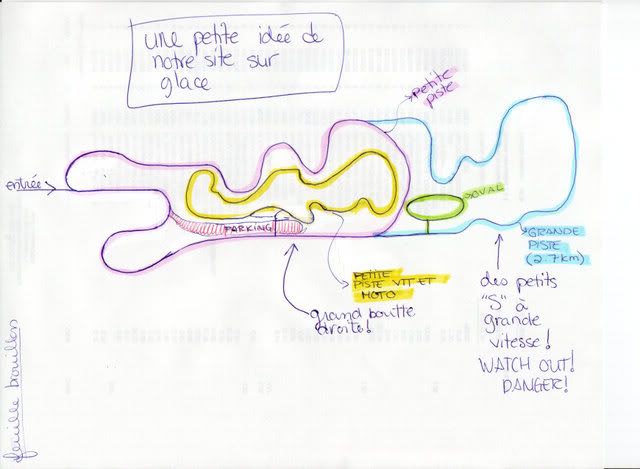 une petite idée de
notre site sur
glace
petite
piste
entrée
OVAL
PARKING
GRANDE
PISTE
(2.7km)
PETITE
PISTE VTT ET
MOTO
grand boutte
droite!
des petits
"S" à
grande
vitesse!
WATCH OUT!
DANGER!
feuille brouillon